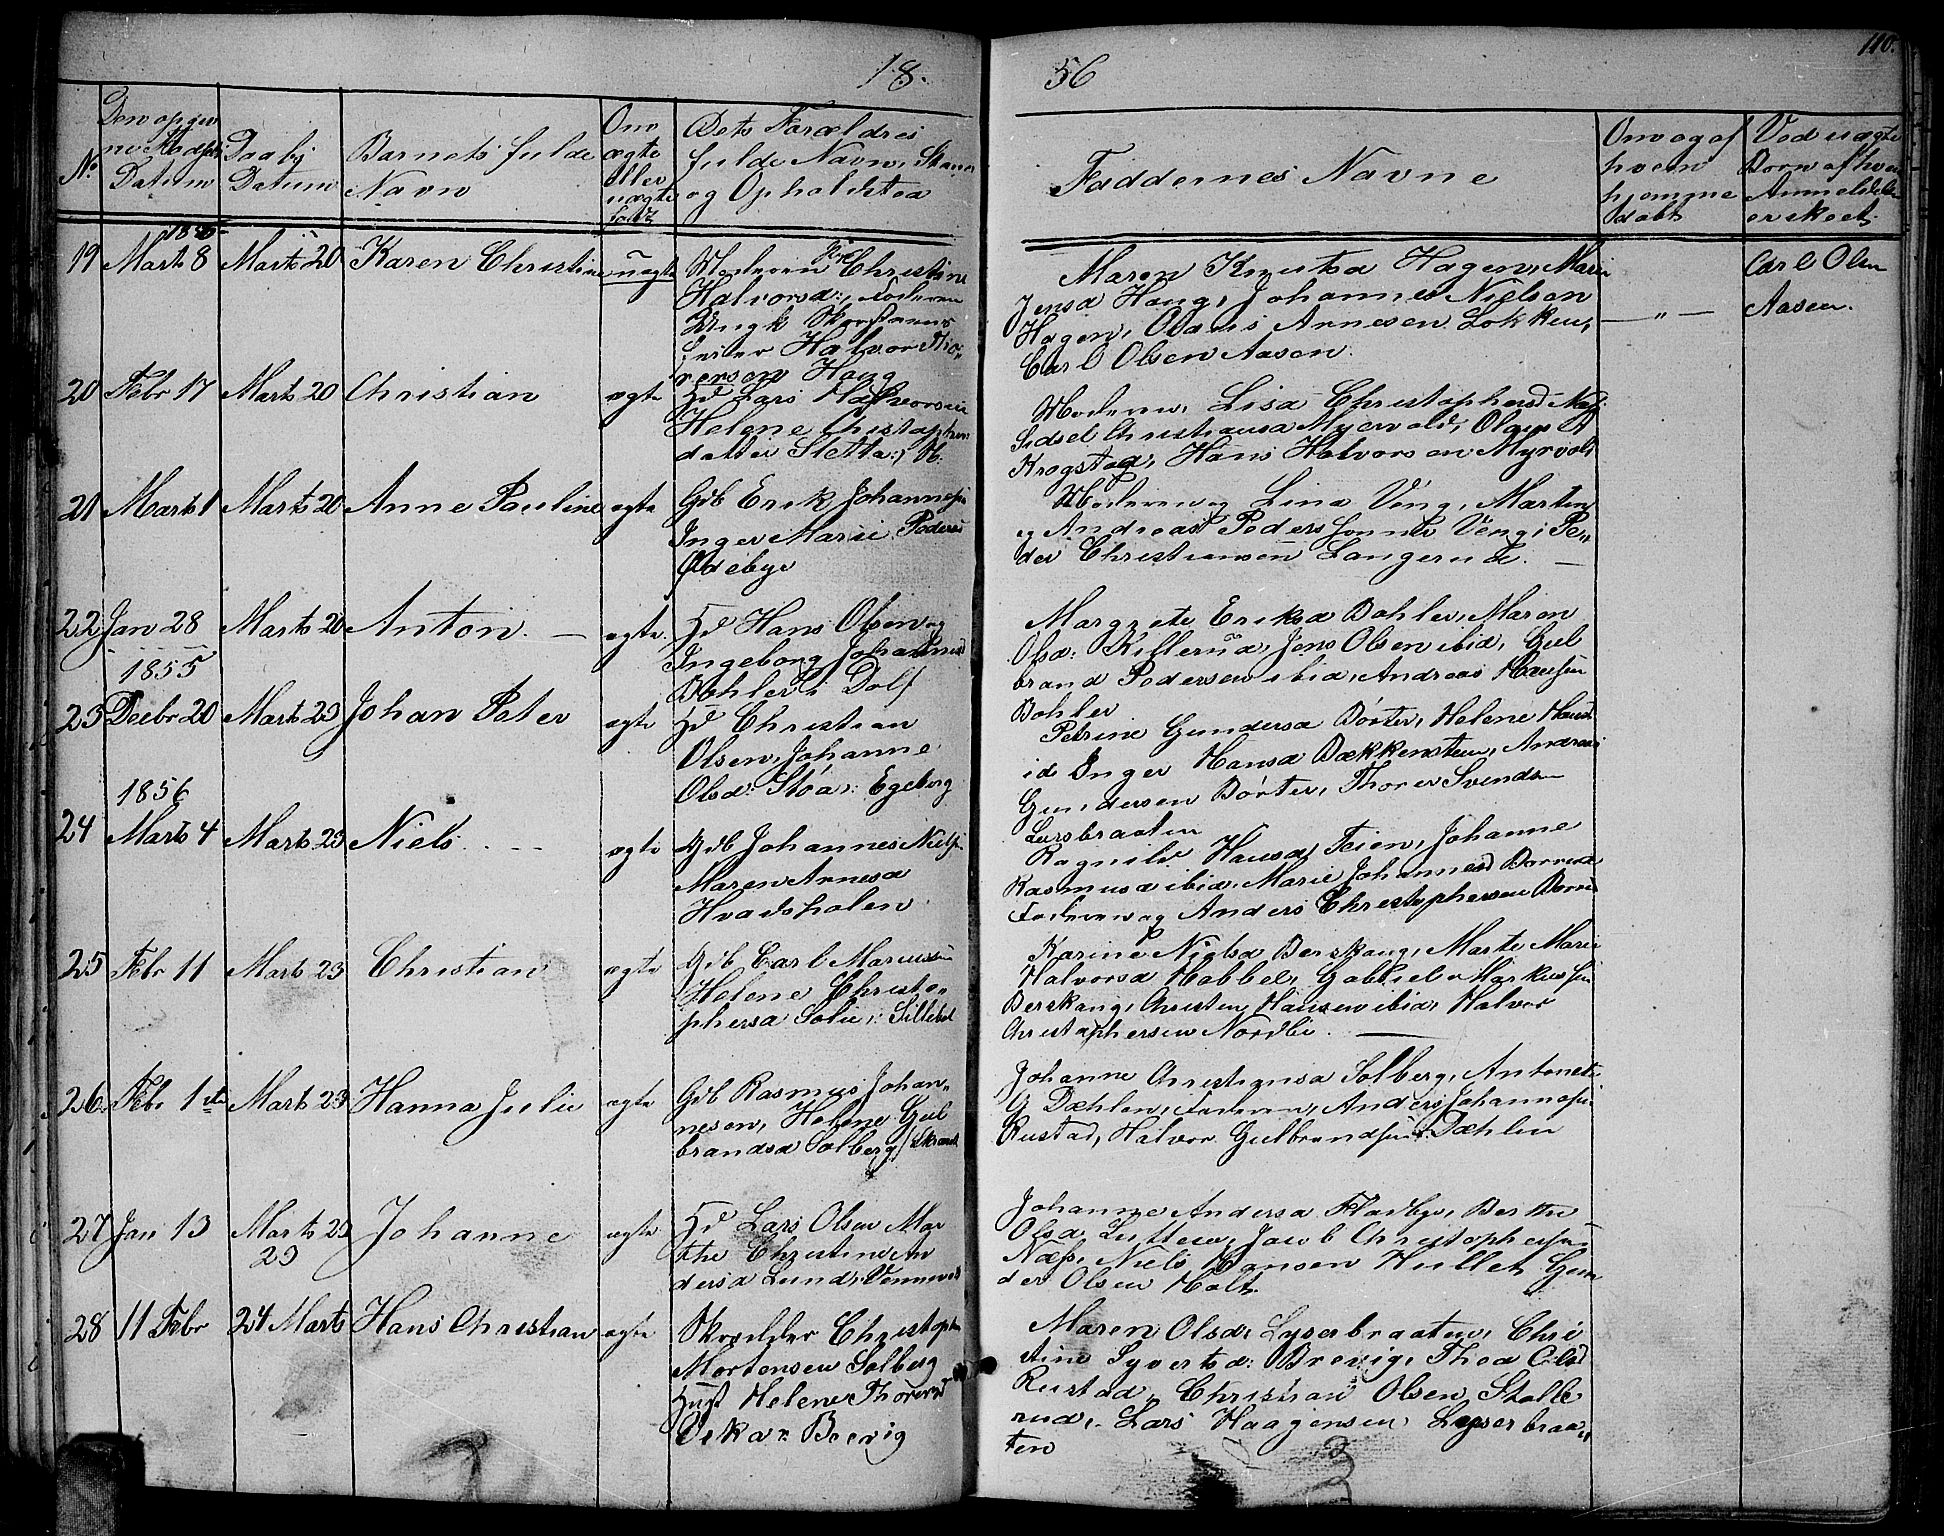 18.
56
110.
No
Den opgiv
ne Fødsels
Datum
Daabs
Datum
Barnets fulde
Navn
Om
ægte
eller
uægte
født
Dets Forældres
fulde Navn, Stand
og Opholdsted
Faddernes Navne
Om og af
hvem
hjemme
døbt
Ved uægte
Børn af hvem
Anmeldelse
er skeet.
19
1856
Marts 8
Marts 20
Karen Christine
uægte
Moderen Christine
Halvorsd:, Faderen
Ungk Skorstens
feier Halvor
Haug
Maren Knutsd Hagen, Marie
Jensd Haug, Johannes Nielsen
Hagen, Olaus Arnesen Løkken,
Carl Olsen Aasen.
— " —
Carl Olsen
Aasen.
20
Febr 17
Marts 20
Christian
ægte
Hd Lars Halvorsen
Helene Christophers
datter Sletta
Moderen, Lisa Christophersd
Sidsel Christiansd Myrvold, Olaus
Krogstad, Hans Halvorsen Myrvold
21
Marts 1
Marts 20
Anne Pauline
ægte
Gdb Erik Johannesen
Inger Marie Pedersd
Ødebye
Moderen og Lina Veng, Marten
og Andreas Peders sønner Veng, Pe-
der Christiansen Langerud. —
22
Jan 28
Marts 20
Anton. —
ægte.
Hd Hans Olsen og
Ingeborg Johannesd
Bøhler i Dolf
Margrete Eriksd Bøhler, Maren
Olsd: Killerud, Jens Olsen ibid, Gul
brand Pedersen ibid, Andreas Hansen
Bøhler
1855
23
Decbr 20
Marts 23
Johan Peter
ægte
Hd Christian
Olsen, Johanne
Olsd: Støa, Egeberg
Petrine Gundersd Børter, Helene Hansd
id Inger Hansd Bækkensten, Andreas
Gundersen Børter, Thorer Svendsen
Lysebraaten
1856
24
Marts 4
Marts 23
Niels. . —
ægte
Gdb Johannes Nielsen
Maren Arnesd
Hvadshølen.
Ragnild Hansd, Feien, Johanne
Rasmusd ibid, Marie Johannesd
Faderen og Anders Christophersen
25
Febr 11
Marts 23
Christian
ægte
Gdb Carl Marcussen
Helene Christo-
phersd Solie,
Karine Nielsd Berskaug, Marte Marie
Halvorsd Habbel, Gabriel Markussen
Berskaug, Christen Hansen ibid, Halvor
Christophersen Nordbie. —
26
Febr 1ste
Marts 23
Hanna Julie
ægte
Gdb Rasmus Johan-
nesen, Helene Gul
brandsd Solberg
Johanne Christiansd Solberg, Antonette
G Dæhlen, Faderen, Anders Johannesen
Rustad, Halvor Gulbrandsen Dæhlen
27
Jan 13
Marts 23
23
Johanne
ægte
Hd Lars Olsen Mar
the Christine An
dersd Lund,
Johanne Andersd Fladbye, Berthe
Olsd Lutten, Jacob Christophersen
Næss, Niels Hansen Hullet, Gun
der Olsen Holt.
28
11 Febr
24 Marts
Hans Christian
ægte
Skrædder Christopher
Mortensen Solberg
Hust Helene Thoresd
Brevig
Maren Olsd, Lyserbraaten, Chri
stine Syvertsd: Brevig, Thea Olsd
Rustad, Christian Olsen, Stalle
rud, Lars Haagensen, Lyserbraa-
ten